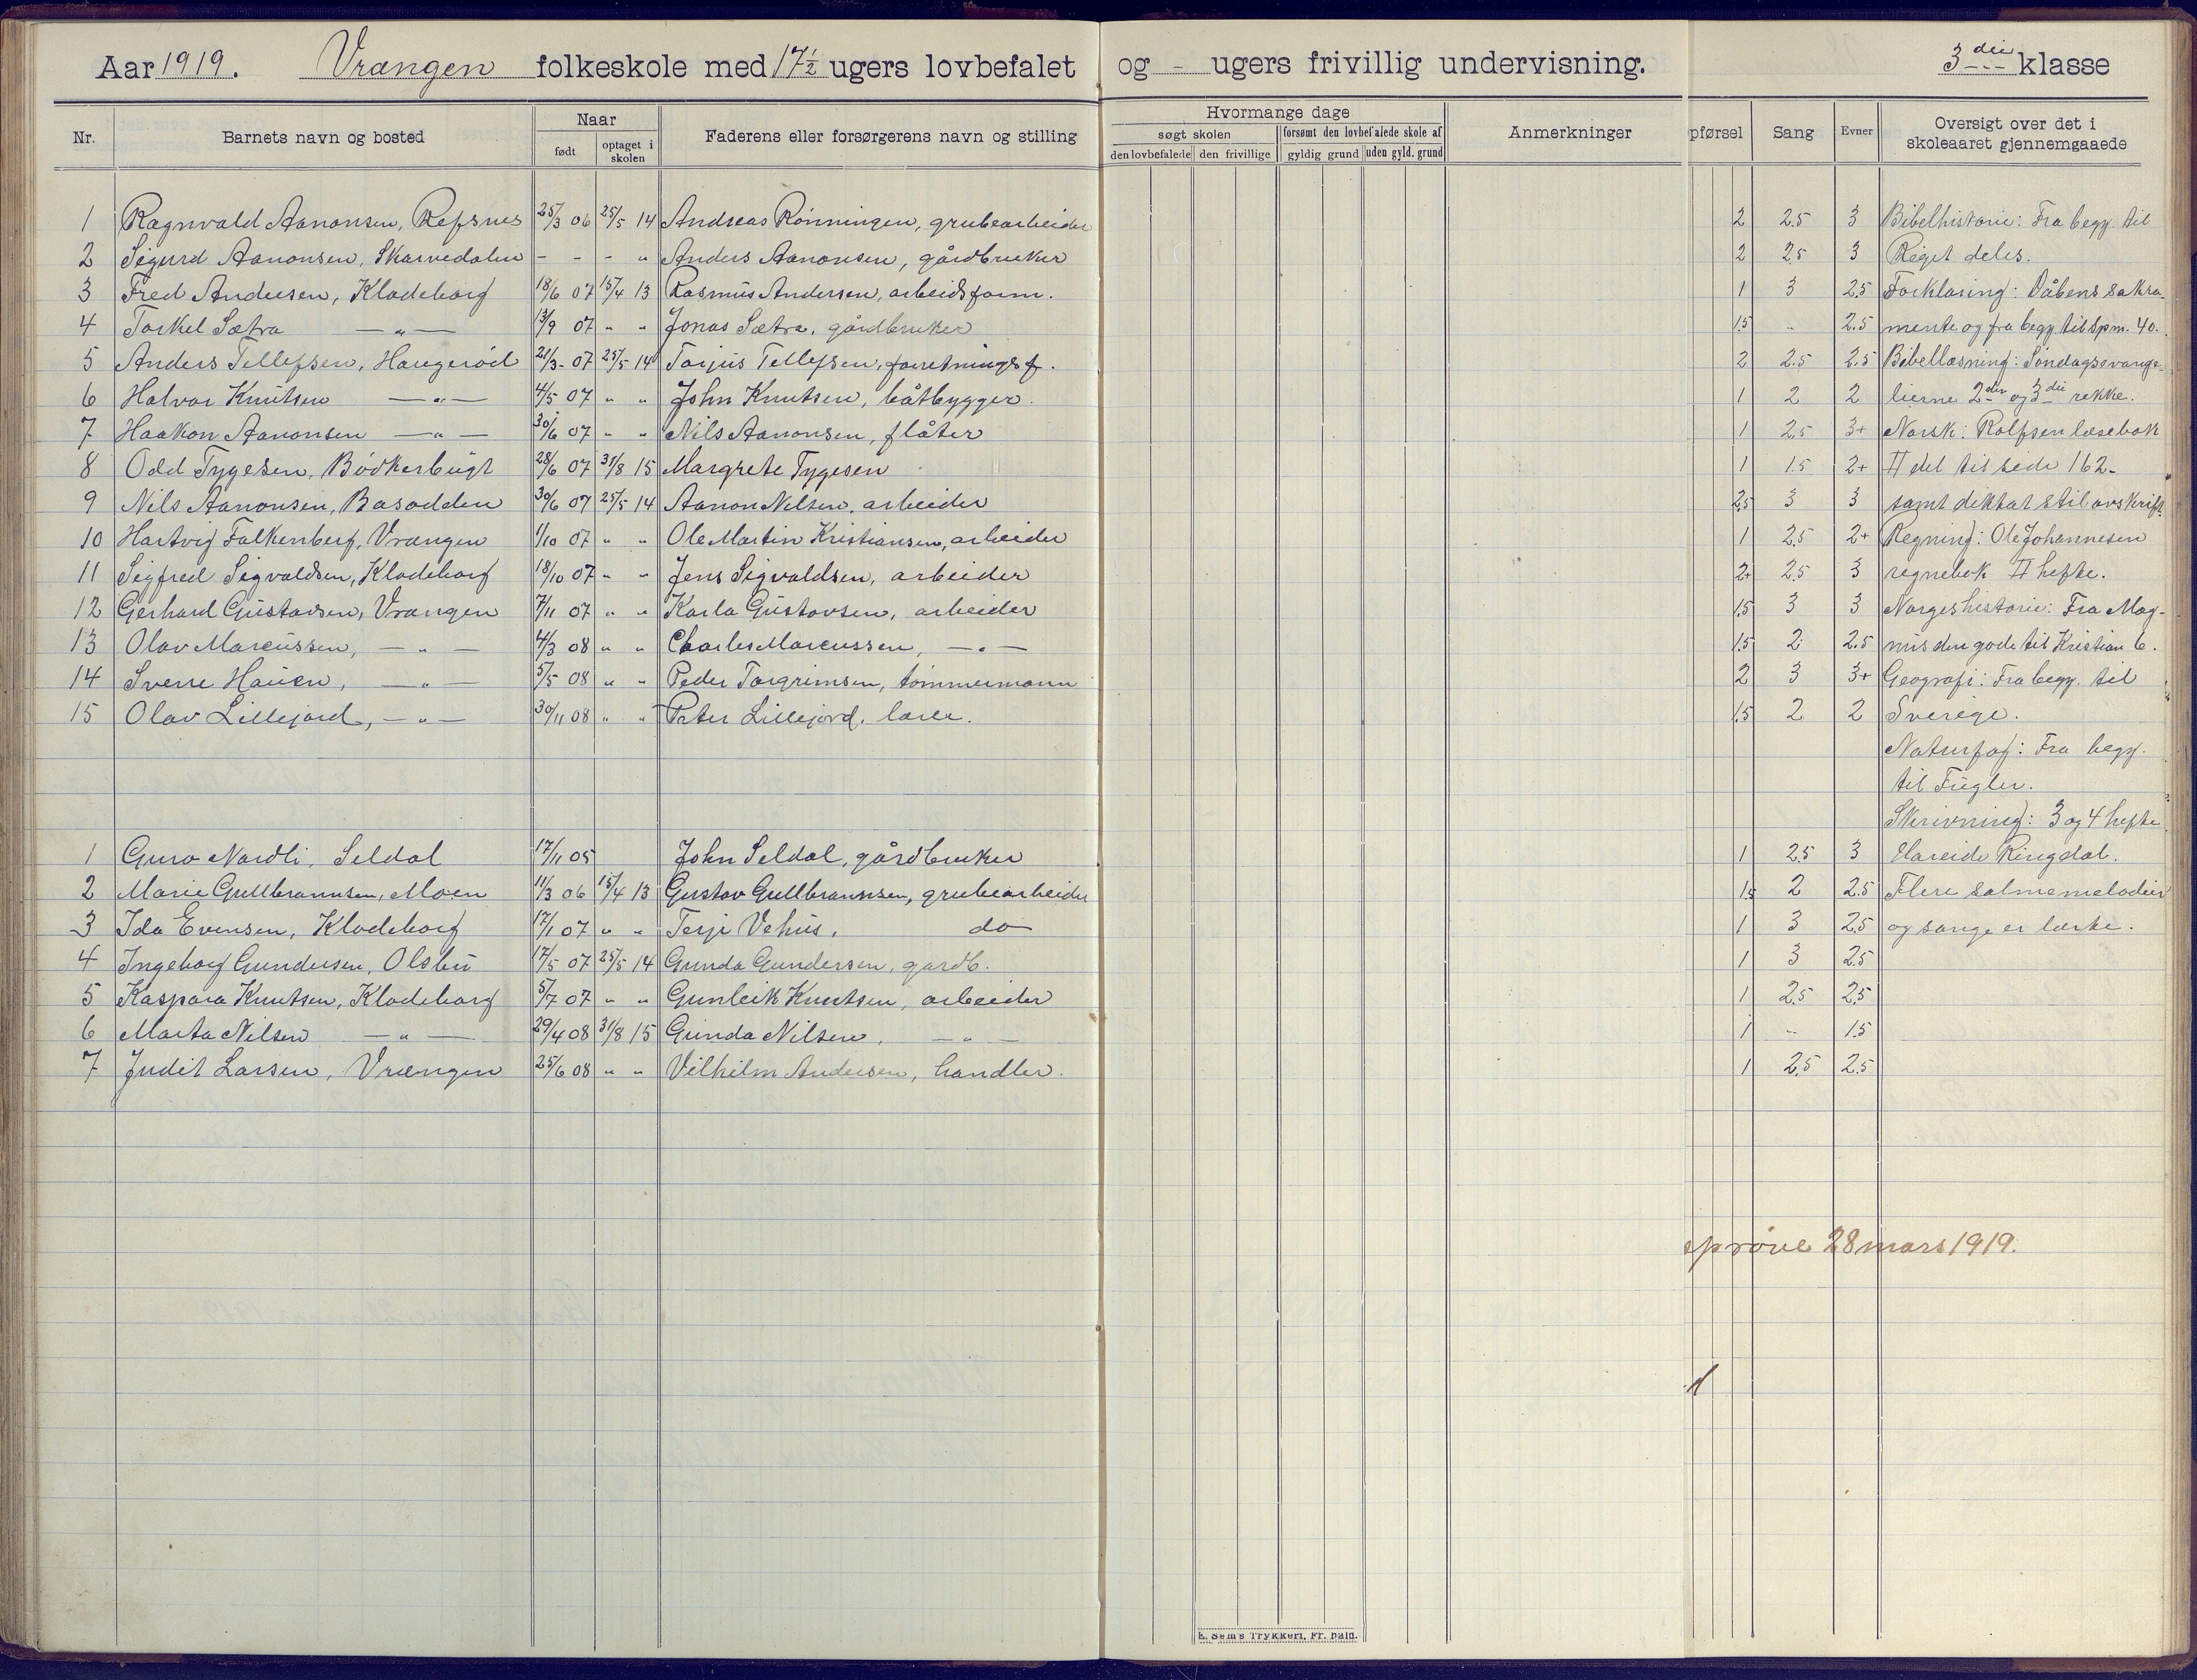 Aar 1919. Vrangen folkeskole med 17½ ugers lovbefalet og - ugers frivillig undervisning. 3die klasse
Nr. Barnets navn og bosted Naar født optaget i skolen Faderens eller forsørgerens navn og stilling
Hvormange dage søgt skolen den lovbefalede den frivillige forsømt den lovbefalede skole af gyldig grund uden gyld. grund Anmerkninger
pførsel Sang Evner Oversigt over det i skoleaaret gjennemgaaede
1 Ragnvald Aanonsen, Refsnes 25/3 06 25/5 14 Andreas Rönningen, grubearbeider 2 2.5 3 Bibelhistorie: Fra begy. til
2 Sigurd Aanonsen, Skarvedalen - - - " Anders Aanonsen, gårdbruker 2 2.5 3 Riget deles.
3 Fred Andersen, Klodeborg 18/6 07 15/4 13 Rasmus Andersen, arbeidsform. 1 3 2.5 Forklaring: Dåbens sakra-
4 Torkel Sætra — " — 13/9 07 " " Jonas Sætra, gårdbruker 1.5 - 2.5 mente og fra begy. til Spm. 40.
5 Anders Tellefsen, Haugerød 21/3 07 25/5 14 Torjus Tellefsen, forretningsf. 2 2.5 2.5 Bibellæsning: Söndagsevange-
6 Halvor Knutsen — " — 4/5 07 " " John Knutsen, båtbygger. 1 2 2 lierne 2den og 3die rekke.
7 Haakon Aanonsen — " — 30/6 07 " " Nils Aanonsen, flåter 1 2.5 3+ Norsk: Rolfsen læsebok
8 Odd Tygesen, Bödkerbugt 28/6 07 31/8 15 Margrete Tygesen 1 1.5 2+ II del til side 162-
9 Nils Aanonsen, Basodden 30/6 07 25/5 14 Aanon Nilsen, arbeider 2.5 3 3 samt diktat stil avskrift.
10 Hartvig Falkenberg, Vrangen 1/10 07 " " Ole Martin Kristiansen, arbeider 1 2.5 2+ Regning: Ole Johannesen
11 Sigfred Sigvaldsen, Klodeborg 18/10 07 " " Jens Sigvaldsen, arbeider 2+ 2.5 3 regnebok II hefte.
12 Gerhard Gustavsen, Vrangen 7/11 07 " " Karla Gustavsen, arbeider 1.5 3 3 Norgeshistorie: Fra Mag-
13 Olav Marcussen, — " — 4/3 08 " " Charles Marcussen, — " — 1.5 2 2.5 nus den gode til Kristian 6.
14 Sverre Hauen, — " — 5/5 08 " " Peder Torgrimsen, tömmermann 2 3 3+ Geografi: Fra begy. til
15 Olav Lillejord, — " — 30/11 08 " " Peter Lillejord, lærer. 1.5 2 2 Sverige.
Naturfag: Fra begy.
til Fugler.
Skrivning: 3 og 4 hefte
1 Guro Nordli, Seldal 17/11 05 John Seldal, gårdbruker 1 2.5 3 Hareide Ringdal.
2 Marie Gullbrannsen, Moen 11/3 06 15/4 13 Gustav Gullbrannsen, grubearbeider 1.5 2 2.5 Flere salmemelodier
3 Ida Evensen, Klodeborg 17/1 07 " " Terje Vehus, do 1 3 2.5 og sange er lærte.
4 Ingeborg Gundersen, Olsbu 17/5 07 25/5 14 Gunda Gundersen, gardb. 1 3 2.5
5 Kaspara Knutsen, Klodeborg 5/7 07 " " Gunleik Knutsen, arbeider 1 2.5 2.5
6 Marta Nilsen — " — 29/4 08 31/8 15 Gunda Nilsen, — " — 1 - 1.5
7 Judit Larsen, Vrængen 25/6 08 " " Vilhelm Andersen, handler. 1 2.5 2.5
sprøve 28 mars 1919.
E. Sem's Trykkeri, Fr. hald.